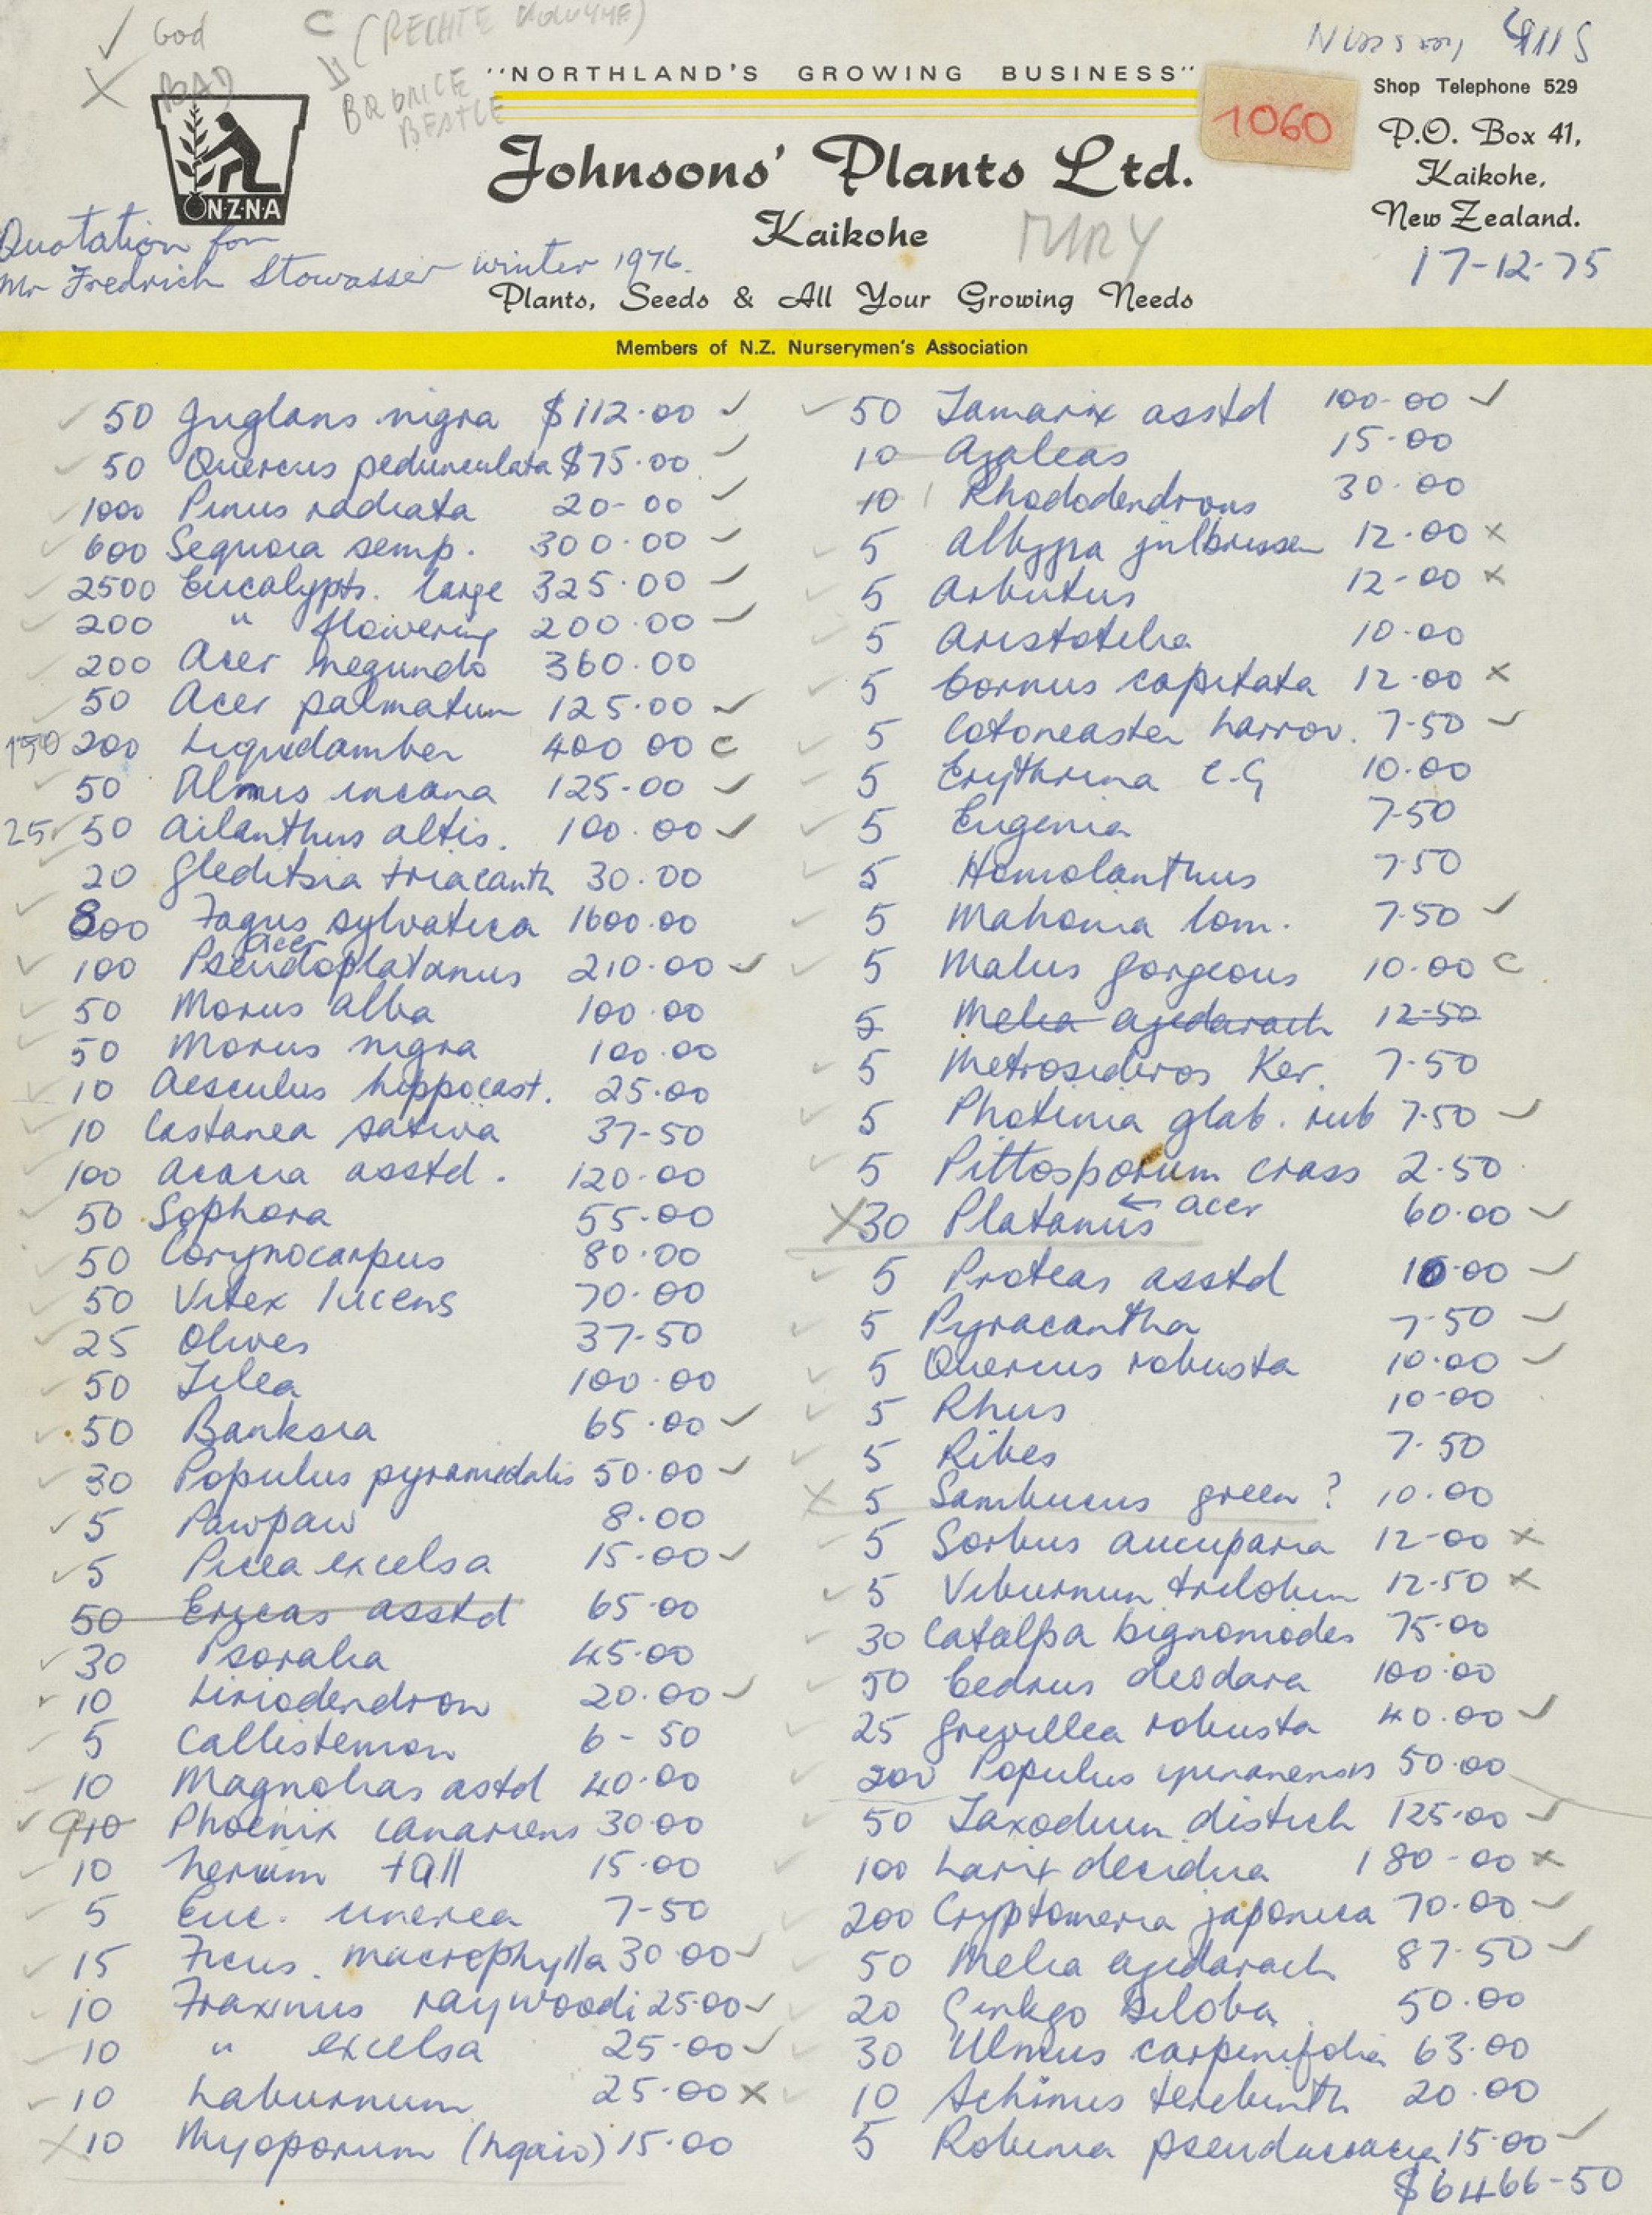 ✓ God
X BAD
C (RECHTE KOLUMNE)
"NORTHLAND'S GROWING BUSINESS"
1060
Shop Telephone 529
P.O. Box 41,
Kaikohe,
New Zealand.
17-12-75
Johnsons' Plants Ltd.
Kaikohe
N·Z·N·A
Quotation for
Mr Fredrich Stowasser winter 1976.
Plants, Seeds & All Your Growing Needs
Members of N.Z. Nurserymen's Association
✓ 50 Juglans nigra $112.00 ✓
✓ 50 Quercus pedunculata $75.00 ✓
✓ 1000 Pinus radiata 20-00 ✓
✓ 600 Sequoia semp. 300.00 ✓
✓ 2500 Eucalypts. large 325.00 ✓
✓ 200 " flowering 200.00 ✓
✓ 200 Acer negundo 360.00
✓ 50 Acer palmatum 125.00 ✓
150 200 Liquidamber 400 00 C
✓ 50 Alnus incana 125-00 ✓
25 ✓ 50 Ailanthus altis. 100.00 ✓
✓ 20 Gleditsia triacanth 30.00
✓ 800 Fagus sylvatica 1600.00
✓ 100 Acer Pseudoplatanus 210.00 ✓
✓ 50 Morus alba 100.00
✓ 50 Morus nigra 100.00
✓ 10 Aesculus hippocast. 25.00
✓ 10 Castanea sativa 37-50
✓ 100 Acacia asstd. 120.00
✓ 50 Sophora 55.00
✓ 50 Corynocarpus 80.00
✓ 50 Vitex lucens 70.00
✓ 25 Olives 37-50
✓ 50 Tilea 100.00
✓ 50 Banksia 65.00 ✓
✓ 30 Populus pyramidalis 50.00 ✓
✓ 5 Pawpaw 8.00
✓ 5 Picea excelsa 15.00 ✓
50 Ericas asstd 65.00
✓ 30 Psoralia 45.00
✓ 10 Liriodendron 20.00 ✓
✓ 5 Callistemon 6-50
✓ 10 Magnolias astd 40.00
✓ 9 10 Phoenix canariens 30.00
✓ 10 Nerium tall 15.00
✓ 5 Euc. cinerea 7-50
✓ 15 Ficus. macrophylla 30.00 ✓
✓ 10 Fraxinus raywoodi 25.00 ✓
✓ 10 " excelsa 25.00 ✓
✓ 10 Laburnum 25.00 X
X 10 Myoporum (Ngaio) 15.00
✓ 50 Tamarix asstd 100-00 ✓
10 Azaleas 15.00
10 Rhododendrons 30.00
✓ 5 Albyzzia julbrissen 12.00 X
✓ 5 Arbutus 12-00 X
✓ 5 Aristotelia 10.00
✓ 5 Cornus capitata 12.00 X
✓ 5 Cotoneaster harrov. 7-50 ✓
✓ 5 Erythrina C.G 10.00
✓ 5 Eugenia 7-50
✓ 5 Homolanthus 7.50
✓ 5 Mahonia lom. 7.50 ✓
✓ 5 Malus gorgeous 10.00 C
5 Melia azedarach 12-50
✓ 5 Metrosideros Ker. 7.50
✓ 5 Photinia glab. rub 7.50 ✓
✓ 5 Pittosporum crass 2.50
X 30 Platanus ← acer 60.00 ✓
✓ 5 Proteas asstd 10.00 ✓
✓ 5 Pyracantha 7.50 ✓
✓ 5 Quercus robusta 10.00 ✓
✓ 5 Rhus 10-00
✓ 5 Ribes 7.50
X 5 Sambucus green? 10.00
✓ 5 Sorbus aucuparia 12-00 X
✓ 5 Viburnum trilobum 12.50 X
✓ 30 Catalpa bignonioides 75.00
✓ 50 Cedrus deodara 100.00
✓ 25 Grevillea robusta 40.00 ✓
✓ 200 Populus yunanensis 50.00
✓ 50 Taxodium distich 125.00 ✓
✓ 100 Larix decidua 180-00 X
✓ 200 Cryptomeria japonica 70.00 ✓
✓ 50 Melia azedarach 87.50 ✓
✓ 20 Ginkgo biloba 50.00
✓ 30 Ulmus carpinifolia 63.00
✓ 10 Schinus terebinth 20.00
5 Robinia pseudacacia 15.00 ✓
$6466-50